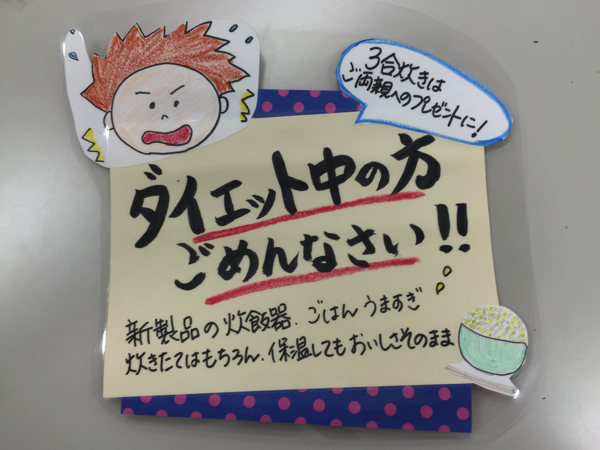 3合炊きは
ご両親へのプレゼントに!
ダイエット中の方
ごめんなさい!!
新製品の炊飯器.ごはんうますぎ
炊きたてはもちろん.保温してもおいしさそのまま